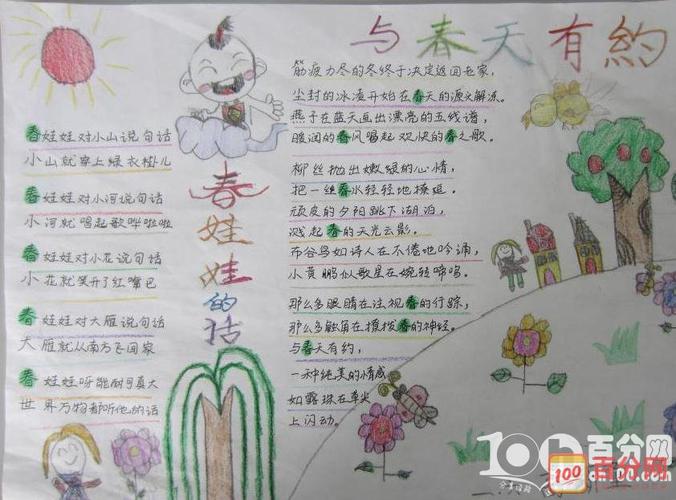 春娃娃对小山说句话
小山就穿上绿衣褂儿
春娃娃对小河说句话
小河就唱起歌哗啦啦
春娃娃对小花说句话
小花就笑开了红嘴巴
春娃娃对大雁说句话
大雁就从南方飞回家
春娃娃呀能耐可真大
世界万物都听他的话
春娃娃的话
与春天有約
筋疲力尽的冬终于决定返回老家，
尘封的冰渣开始在春天的源头解冻。
燕子在蓝天画出漂亮的五线谱，
暖润的春风唱起欢快的春之歌。
柳丝抛出嫩绿的心情，
把一丝春水轻轻地撩逗。
顽皮的夕阳跳下湖泊，
溅起春的天光云影。
布谷鸟如诗人在不倦地吟诵，
小黄鹂似歌星在婉转啼鸣。
那么多眼睛在注视春的行踪，
那么多触角在撩拨春的神经。
与春天有约，
一种纯美的情感
如露珠在草尖
上闪动。
百分网
100
百分网